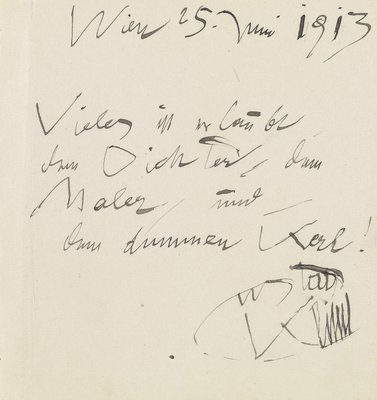 Wien 25. Juni 1913
Vieles ist erlaubt
dem Dichter, dem
Maler, und
dem dummen Kerl!
Gustav
Klimt